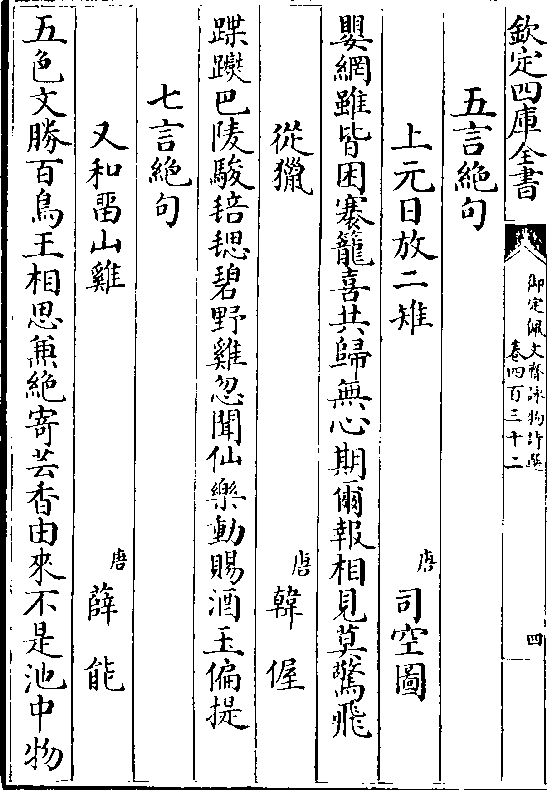 欽定四庫全書
御定佩文齋詠物詩選
卷四百三十二
四
五言絶句
上元日放二雉
唐 司空圖
嬰網雖皆困褰籠喜共歸無心期爾報相見莫驚飛
從獵
唐 韓偓
蹀躞巴陵駿毰毸碧野雞忽聞仙樂動賜酒玉偏提
七言絶句
又和留山雞
唐 薛能
五色文勝百鳥王相思兼絶寄芸香由來不是池中物